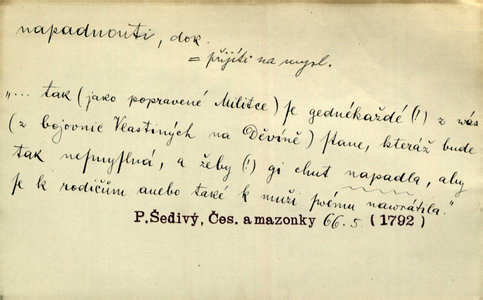 napadnouti, dok.
= přijíti na mysl.
„... tak (jako popravené Militce) ſe gednékaždé (!) z wás
(z bojovnic Vlastiných na Děvíně) ſtane, kteráž bude
tak neſmyſlná, a žeby (!) gi chut napadla, aby
ſe k rodičům anebo také k muži ſwému nawrátila."
P. Šedivý, Čes. amazonky 66. 5. (1792)